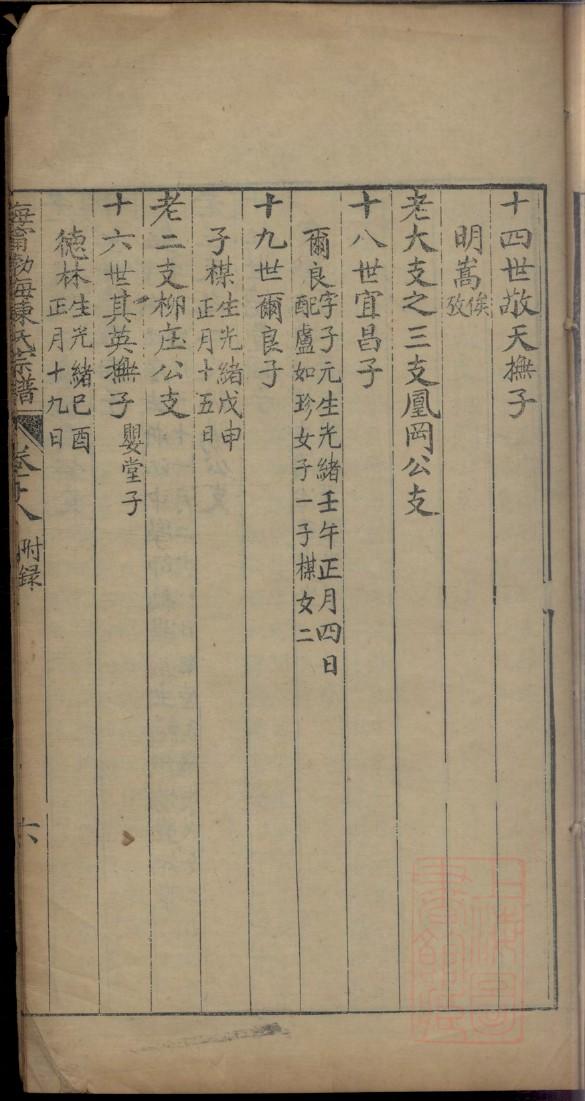 十四世敬天撫子
明嵩俟攷
老大支之三支鳳岡公支
十八世宜昌子
爾良字子元生光緒壬午正月四日
配盧如珍女子一子楳女二
十九世爾良子
子楳生光緒戊申
正月十五日
老二支柳庄公支
十六世其英撫子嬰堂子
德林生光緒己酉
正月十九日
海甯勃海陳氏宗譜
附録
六